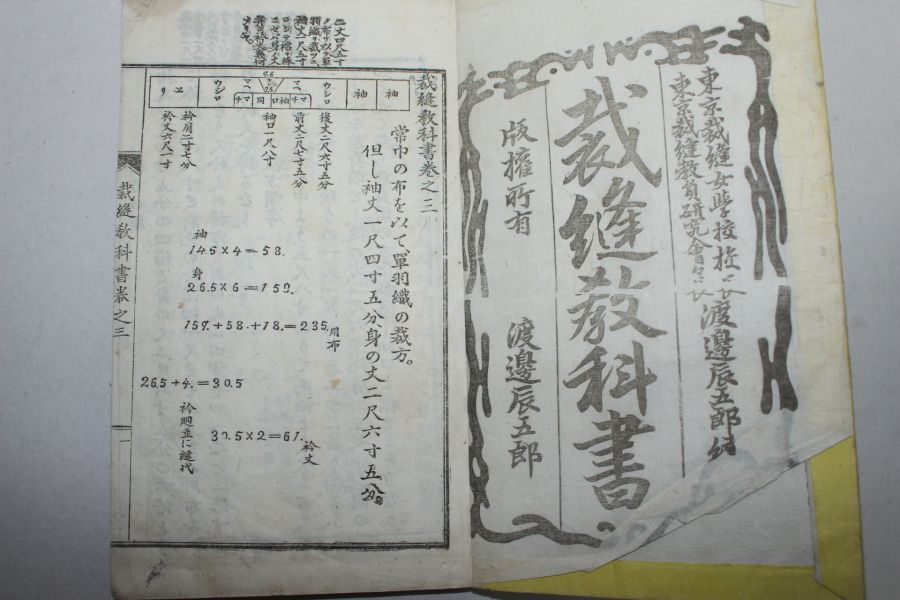 東京裁縫女學校校長
東京裁縫教員研究會会長
渡邊辰五郎編
裁縫教科書
版權所有
渡邊辰五郎
二丈四尺五寸
ノ布ヲ以テ單
羽織ヲ裁ツニ
袖丈一尺五寸
裁縫教科書卷之三
袖
袖
ウシロ
マヘ
マチ
袖口
同
マチ
マヘ
ウシロ
ヱリ
常巾の布を以て、單羽織の裁方。
但し袖丈一尺四寸五分身の丈二尺六寸五分。
後丈二尺六寸五分
前丈二尺七寸五分
袖口一尺八寸
衿肩二寸七分
衿丈六尺一寸
袖
14.5×4=58.
身
26.5×6=159.
159.+58.+18.=235.
用布
26.5+4.=30.5
衿廻並に縫代
30.5×2=61.
衿丈
裁縫教科書卷之三
一